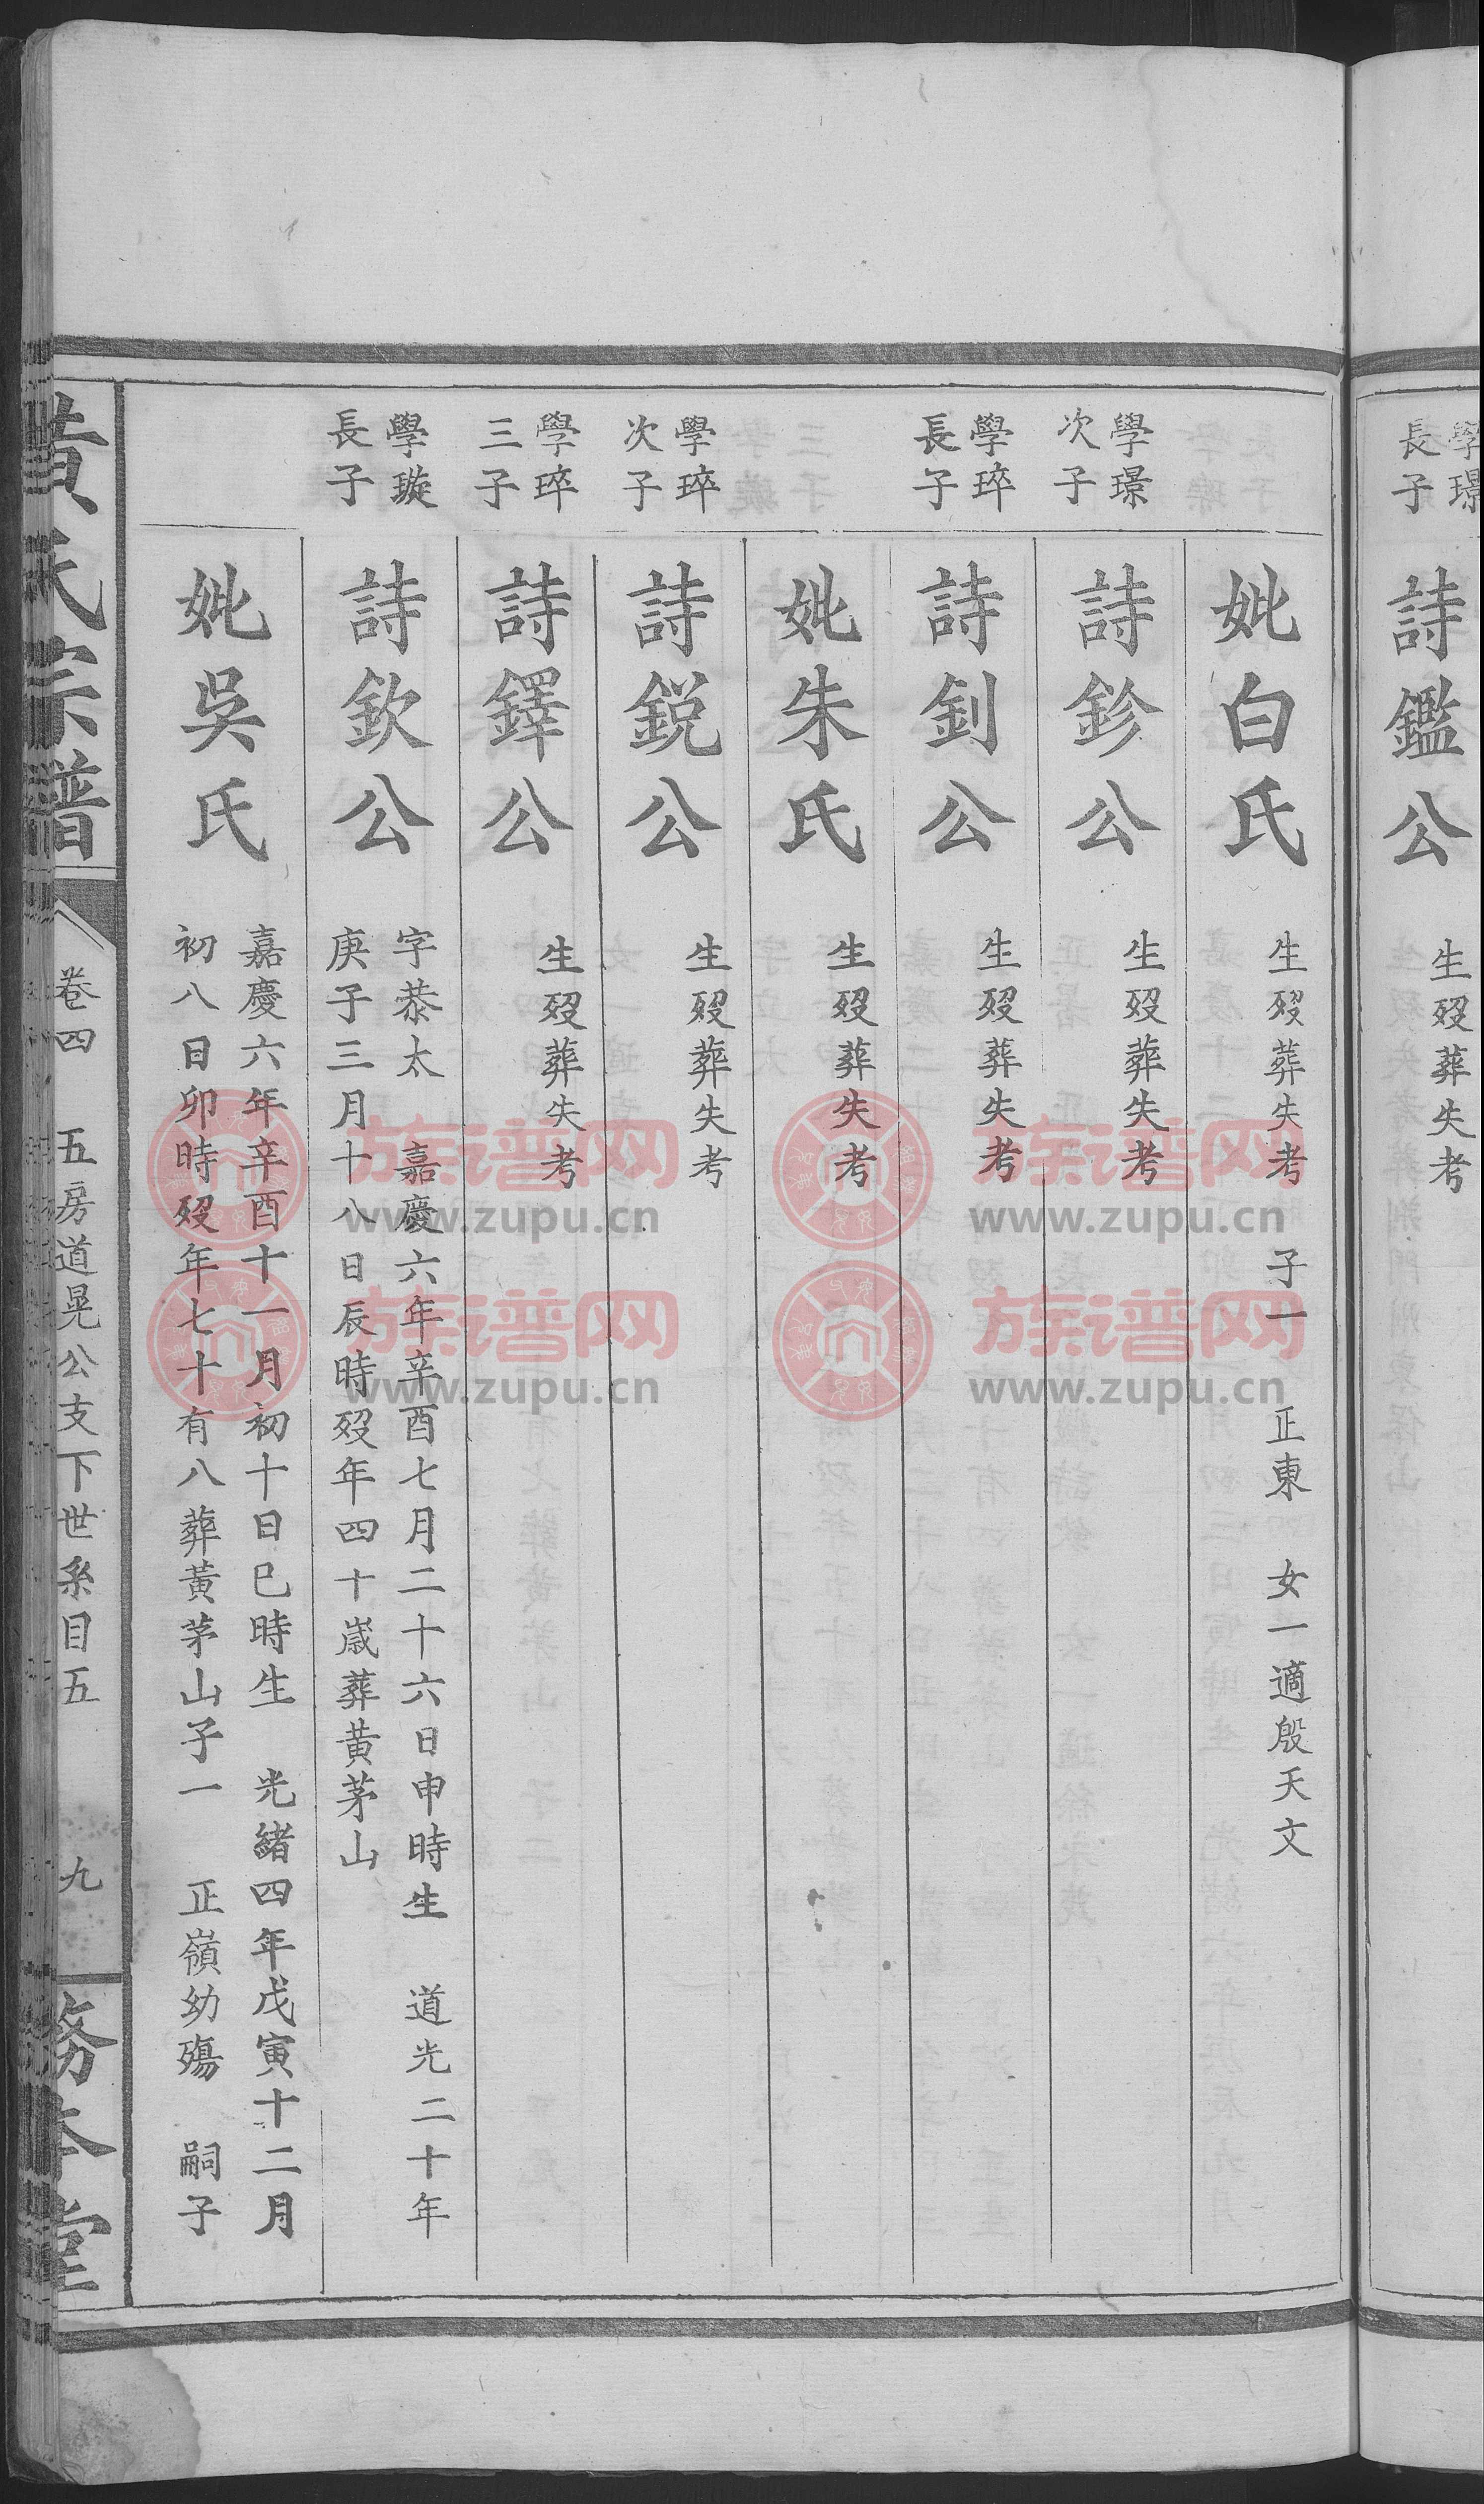 學璟
長子
詩鑑公
生歿葬失考
妣白氏
生歿葬失考 子一 正東 女一適殷天文
學璟
次子
詩鉁公
生歿葬失考
學琗
長子
詩釗公
生歿葬失考
妣朱氏
生歿葬失考
學琗
次子
詩銳公
生歿葬失考
學琗
三子
詩鐸公
生歿葬失考
學璇
長子
詩欽公
字恭太 嘉慶六年辛酉七月二十六日申時生 道光二十年
庚子三月十八日辰時歿年四十歲葬黃茅山
妣吳氏
嘉慶六年辛酉十一月初十日巳時生 光緒四年戊寅十二月
初八日卯時歿年七十有八葬黃茅山子一 正嶺幼殤 嗣子
黃氏宗譜
卷四 五房道晃公支下世系目五 九
務本堂
族谱网
www.zupu.cn
族谱网
www.zupu.cn
族谱网
www.zupu.cn
族谱网
www.zupu.cn